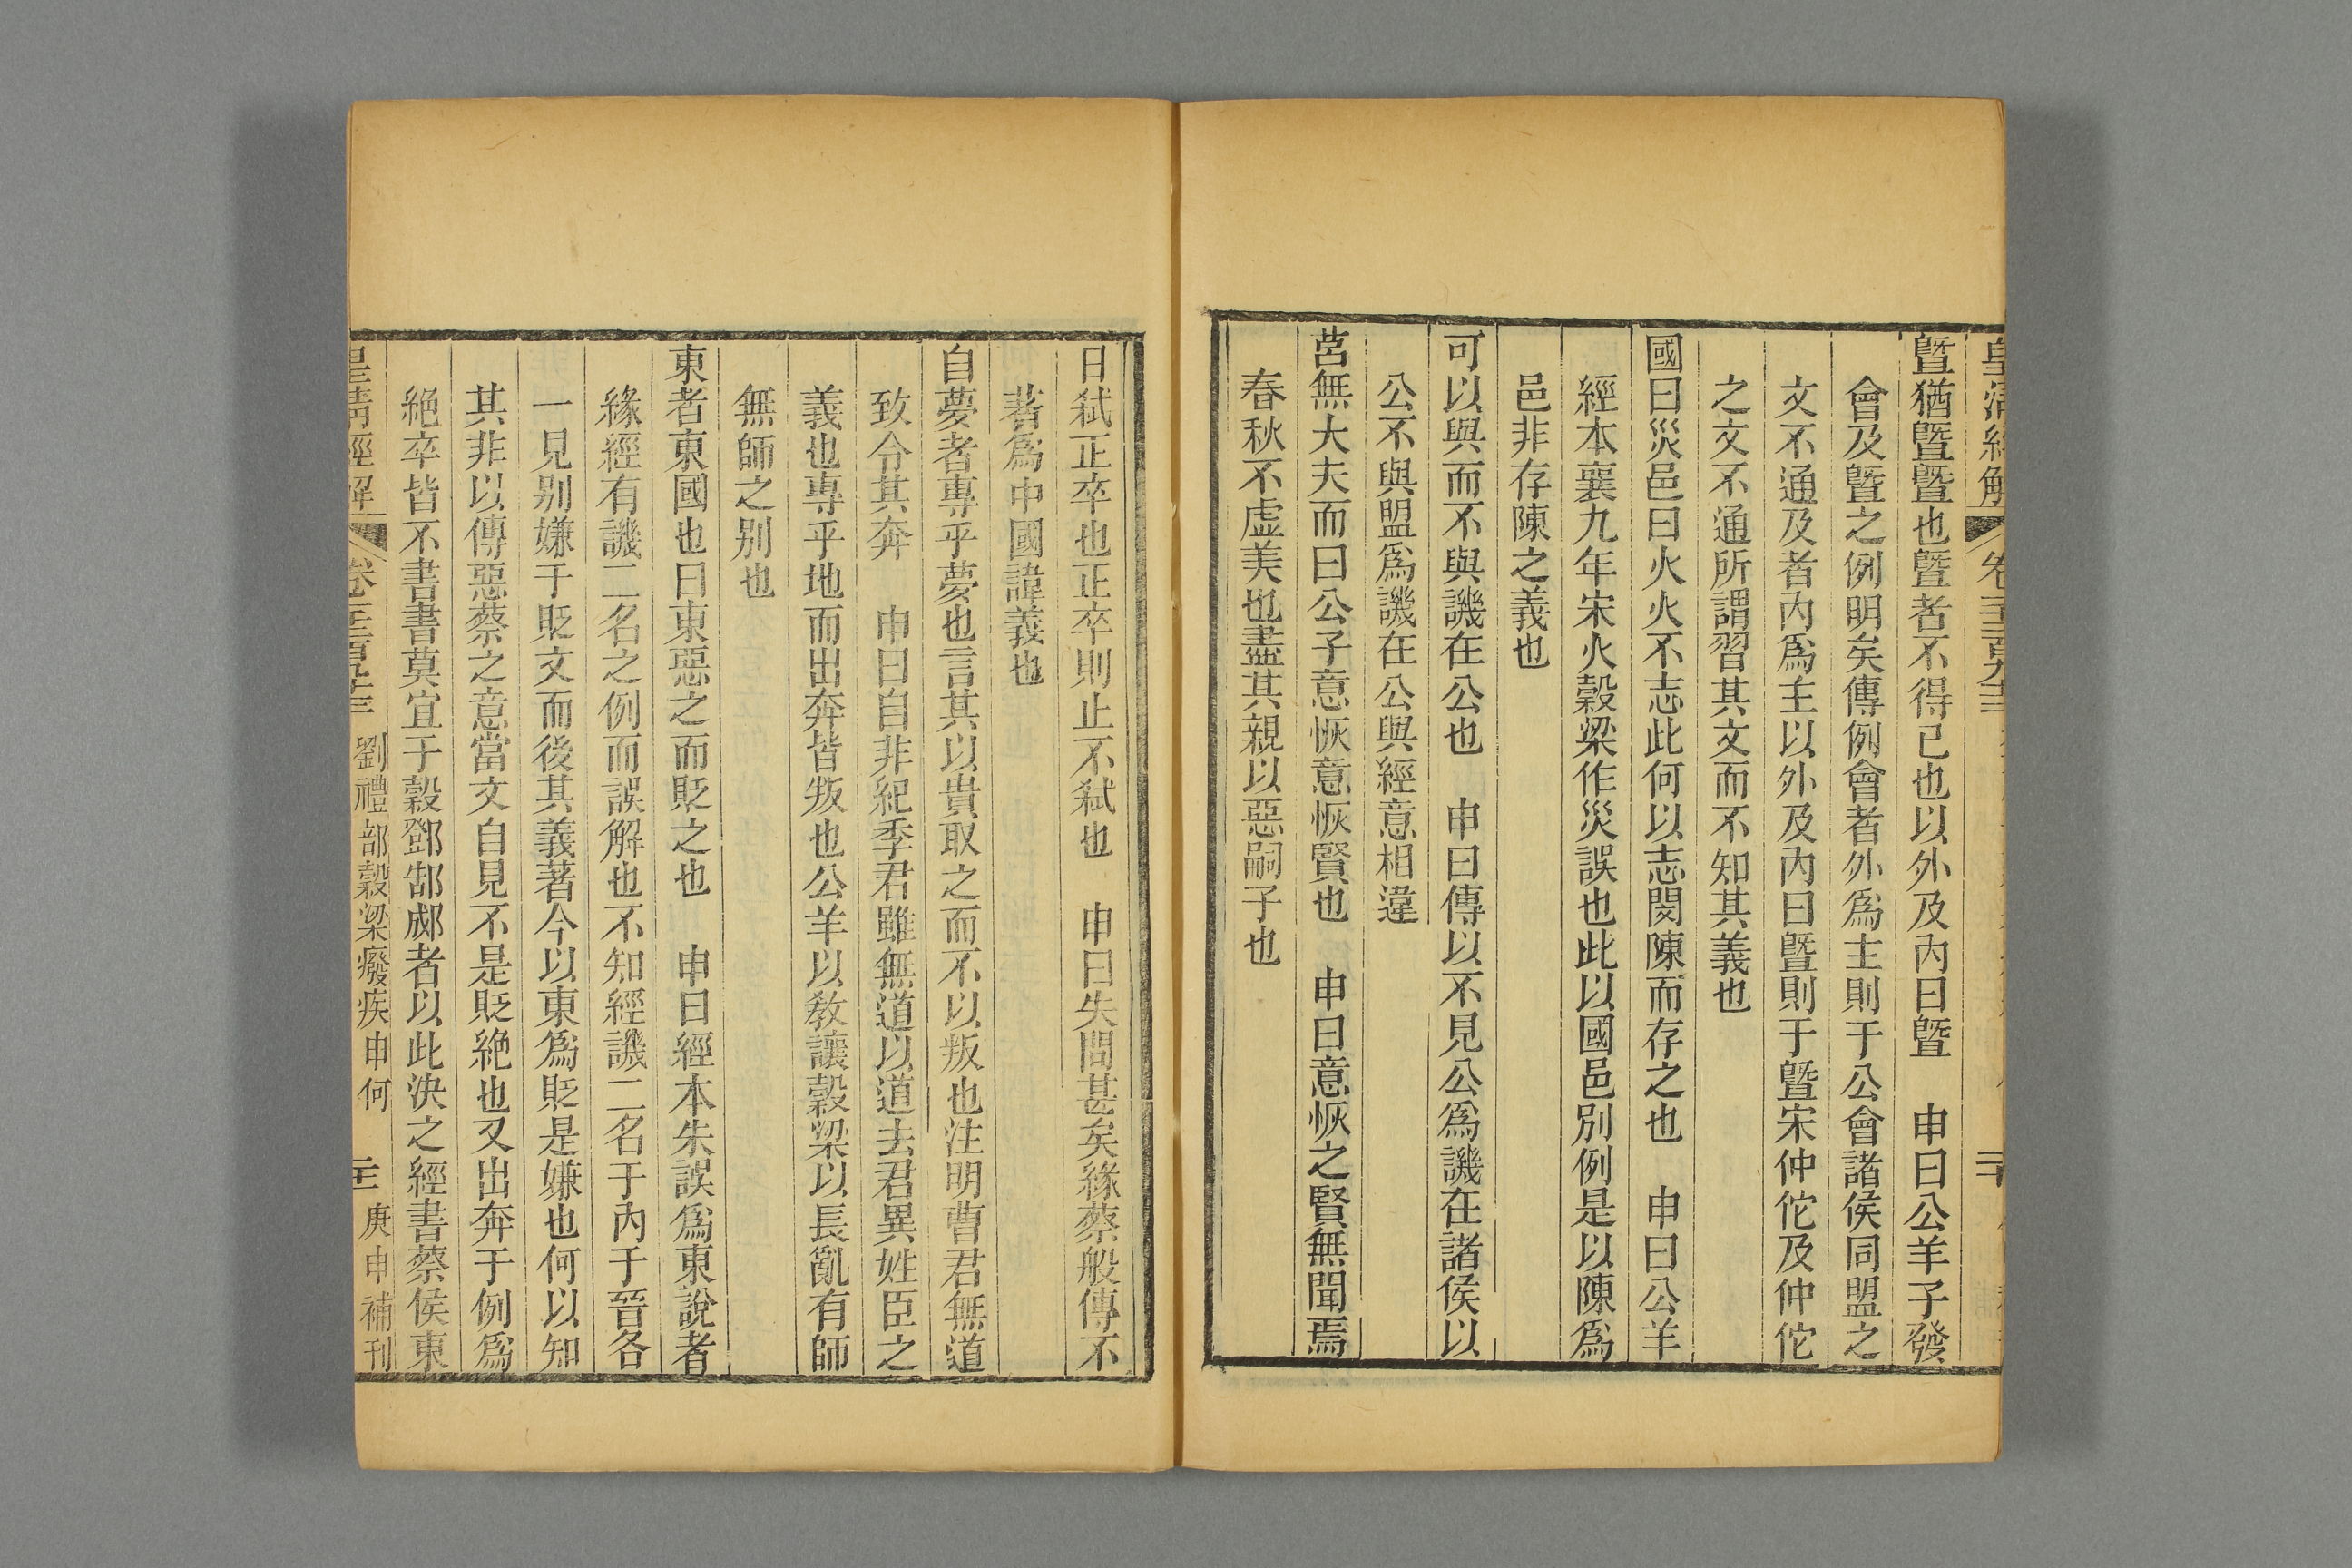 皇清經解 卷千二百九十三 二十
曁猶曁曁也曁者不得已也以外及內曰曁　申曰公羊子發
會及曁之例明矣傳例會者外爲主則于公會諸侯同盟之
文不通及者內爲主以外及內曰曁則于曁宋仲佗及仲佗
之文不通所謂習其文而不知其義也
國曰災邑曰火火不志此何以志閔陳而存之也　申曰公羊
經本襄九年宋火穀梁作災誤也此以國邑別例是以陳爲
邑非存陳之義也
可以與而不與譏在公也　申曰傳以不見公爲譏在諸侯以
公不與盟爲譏在公與經意相違
莒無大夫而曰公子意恢意恢賢也　申曰意恢之賢無聞焉
春秋不虛美也盡其親以惡嗣子也
日弑正卒也正卒則止不弑也　申曰失問甚矣緣蔡般傳不
著爲中國諱義也
自夢者專乎夢也言其以貴取之而不以叛也注明曹君無道
致令其奔　申曰自非紀季君雖無道以道去君異姓臣之
義也專乎地而出奔皆叛也公羊以敎讓穀梁以長亂有師
無師之别也
東者東國也曰東惡之而貶之也　申曰經本朱誤爲東說者
緣經有譏二名之例而誤解也不知經譏二名于內于晉各
一見别嫌于貶文而後其義著今以東爲貶是嫌也何以知
其非以傳惡蔡之意當文自見不是貶絶也又出奔于例爲
絶卒皆不書書莫宜于穀鄧郜郕者以此決之經書蔡侯東
皇清經解 卷千二百九十三 劉禮部穀梁癈疾申何 二十一 庚申補刊